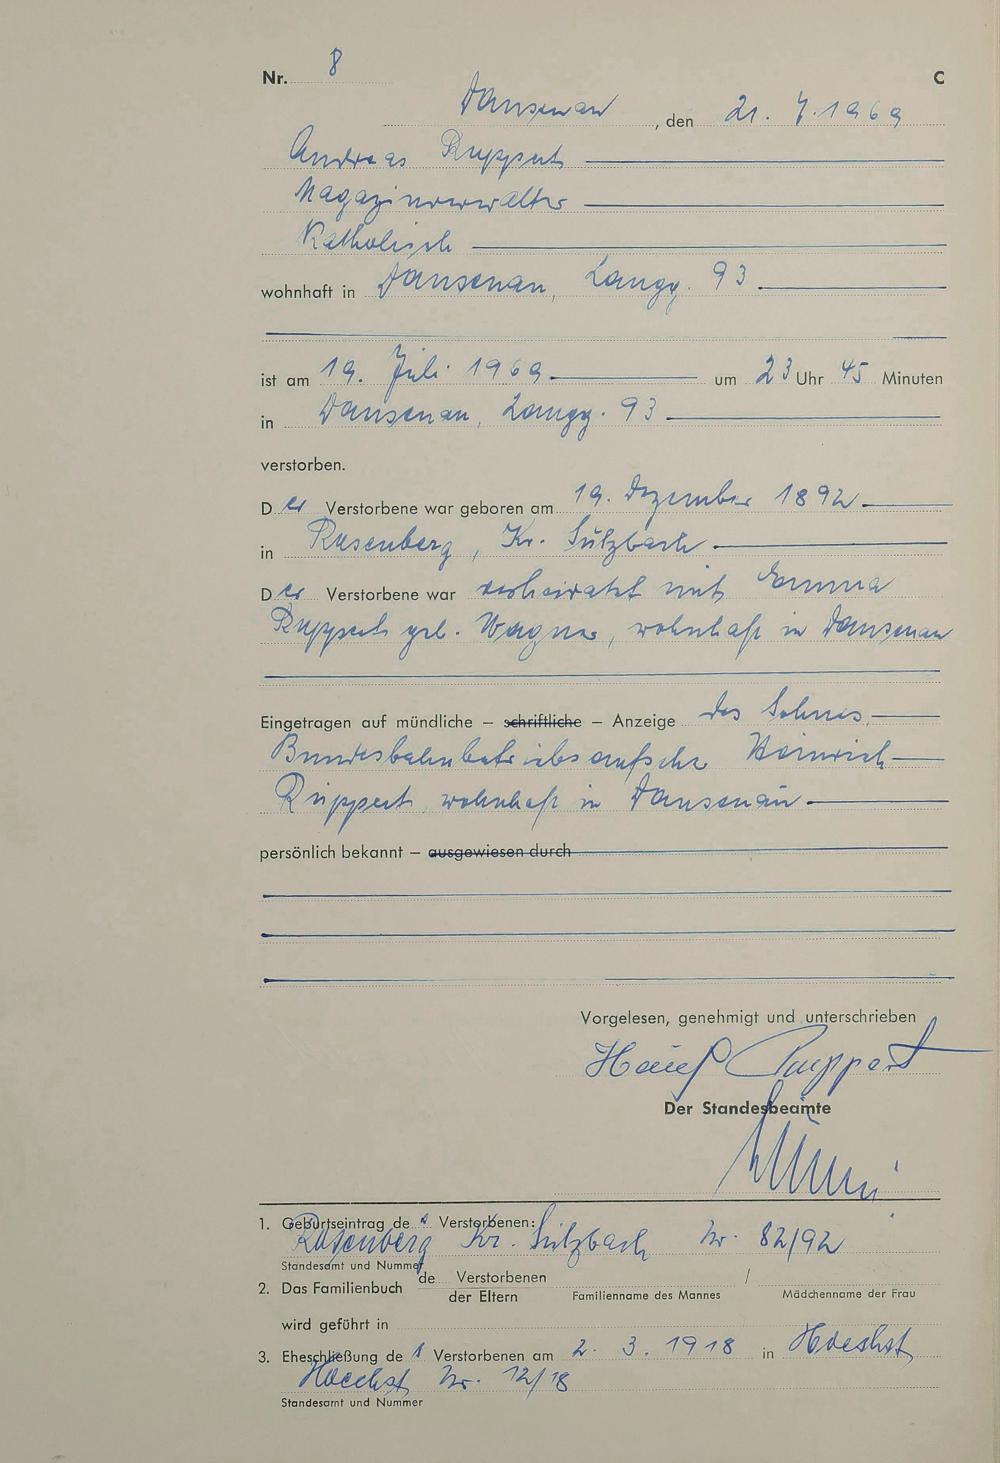 Nr. 8 C
Dausenau, den 21. 7. 1969
Andreas Ruppert
Magazinverwalter
Katholisch
wohnhaft in Dausenau, Langg. 93
ist am 19. Juli 1969 um 23 Uhr 45 Minuten
in Dausenau, Langg. 93
verstorben.
Der Verstorbene war geboren am 19. Dezember 1892
in Rosenberg, Kr. Sulzbach
Der Verstorbene war verheiratet mit Emma
Ruppert geb. Wagner, wohnhaft in Dausenau
Eingetragen auf mündliche – schriftliche – Anzeige des Sohnes,
Bundesbahnbetriebsaufseher Heinrich
Ruppert wohnhaft in Dausenau
persönlich bekannt – ausgewiesen durch
Vorgelesen, genehmigt und unterschrieben
Ruppert
Der Standesbeamte
1. Geburtseintrag des Verstorbenen:
Rosenberg Kr. Sulzbach Nr. 82/92
Standesamt und Nummer
2. Das Familienbuch de Verstorbenen /
der Eltern Familienname des Mannes Mädchenname der Frau
wird geführt in
3. Eheschließung des Verstorbenen am 2. 3. 1918 in Hoechst
Hoechst Nr. 12/18
Standesamt und Nummer